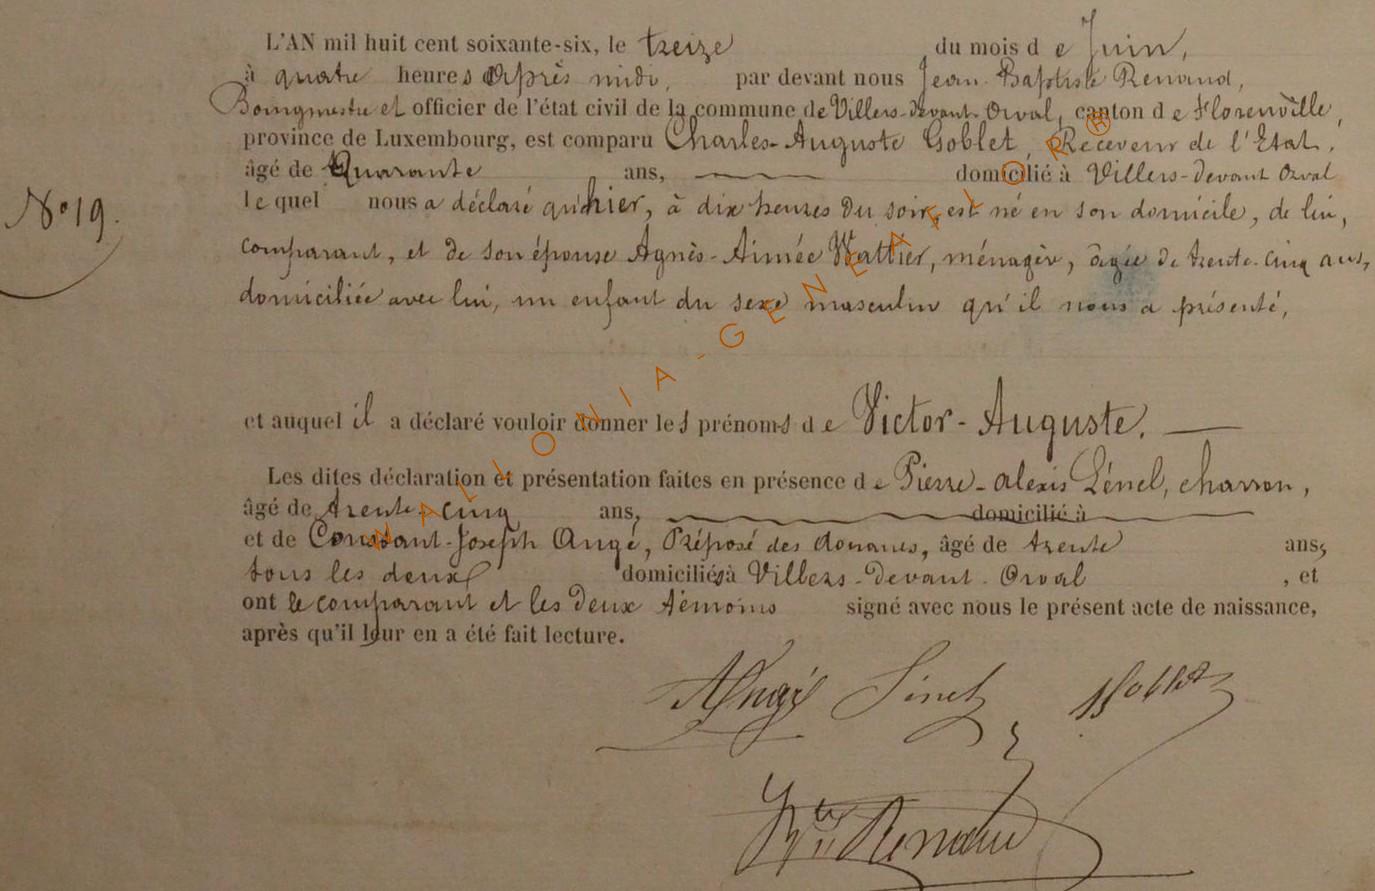 L'AN mil huit cent soixante-six, le treize du mois de Juin,
à quatre heures après midi, par devant nous Jean-Baptiste Renaud,
Bourgmestre et officier de l'état civil de la commune de Villers-devant-Orval, canton de Florenville,
province de Luxembourg, est comparu Charles-Auguste Goblet, Receveur de l'Etat,
âgé de Quarante ans, domicilié à Villers-devant Orval
N° 19.
lequel nous a déclaré qu'hier, à dix heures du soir, est né en son domicile, de lui,
comparant, et de son épouse Agnès-Aimée Wattier, ménagère, âgée de trente-cinq ans,
domiciliée avec lui, un enfant du sexe masculin qu'il nous a présenté,
et auquel il a déclaré vouloir donner les prénoms de Victor-Auguste.
Les dites déclaration et présentation faites en présence de Pierre-alexis Génel, charron,
âgé de trente-cinq ans, domicilié à
et de Constant-Joseph Angé, Préposé des douanes, âgé de trente ans,
tous les deux domiciliés à Villers-devant-Orval, et
ont le comparant et les deux témoins signé avec nous le présent acte de naissance,
après qu'il leur en a été fait lecture.
Angé
Renaud
WALLONIA-GENEALOR®